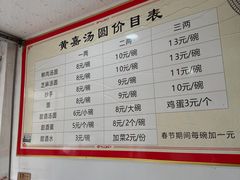 黄嘉汤圆价目表
一两 二两 三两
鲜肉汤圆 8元/碗 10元/碗 13元/碗
芝麻汤圆 8元/碗 10元/碗 13元/碗
抄手 8元/碗 9元/碗 11元/碗
面 8元/碗 9元/碗 10元/碗
醪糟汤圆 6元/小碗 8元/大碗 鸡蛋3元/个
醪糟蛋 5元/个/碗 8元/2个/碗
醪糟水 3元/碗 加菜2元/份 春节期间每碗加一元